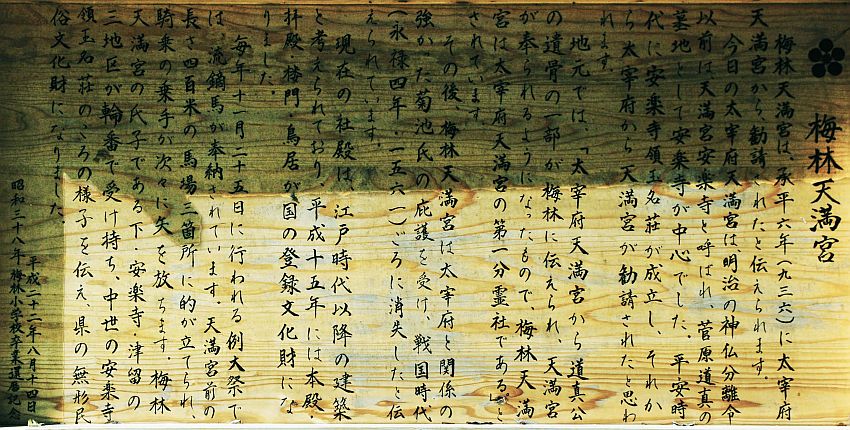 梅林天満宮
梅林天満宮は、承平六年(九三六)に太宰府
天満宮から勧請されたと伝えられます。
今日の太宰府天満宮は明治の神仏分離令
以前は天満宮安楽寺と呼ばれ、菅原道真の
墓地として安楽寺が中心でした。平安時
代に安楽寺領玉名荘が成立し、それか
ら太宰府から天満宮が勧請されたと思わ
れます。
地元では、「太宰府天満宮から道真公
の遺骨の一部が梅林に伝えられ、天満宮
が奉られるようになったもので、梅林天満
宮は太宰府天満宮の第一分霊社である」と
されています。
その後、梅林天満宮は太宰府と関係の
強かた菊池氏の庇護を受け、戦国時代
(永禄四年・一五六一)ごろに消失したと伝
えられています。
現在の社殿は、江戸時代以降の建築
と考えられており、平成十五年には本殿・
拝殿・楼門・鳥居が国の登録文化財にな
りました。
毎年十一月二十五日に行われる例大祭で
は、流鏑馬が奉納されています。天満宮前の
長さ四百米の馬場三箇所に的が立てられ、
騎乗の乗手が次々に矢を放ちます。梅林
天満宮の氏子である下・安楽寺・津留の
三地区が輪番で受け持ち、中世の安楽寺
領玉名荘のころの様子を伝え、県の無形民
俗文化財になりました。
平成二十二年八月十四日
昭和三十八年 梅林小学校卒業還暦記念